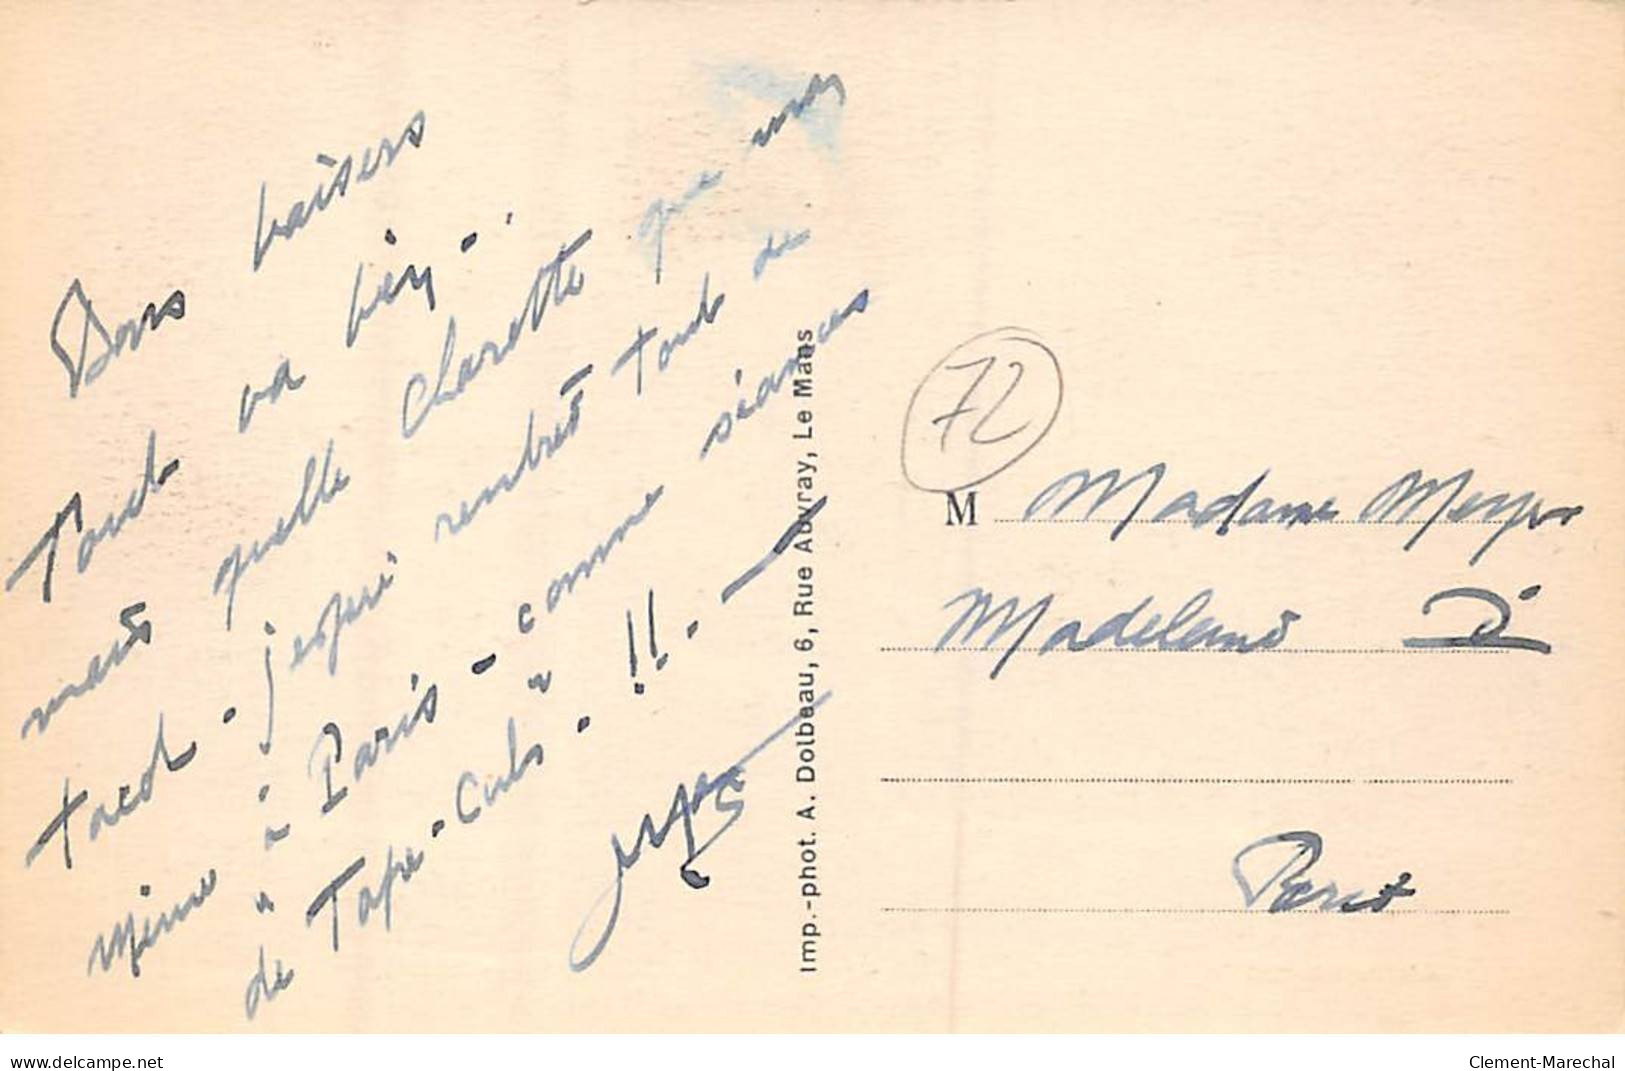 Bons baisers
Tout va bien.
mais quelle charette que mon
tacot - j'espère rentrer tout de
même à Paris - comme séances
de "Tape-Culs" - !! - 
Imp.-phot. A. Dolbeau, 6, Rue Auvray, Le Mans
72
M Madame Meyer
Madeleine
Paris
delcampe.net
Clement-Marechal